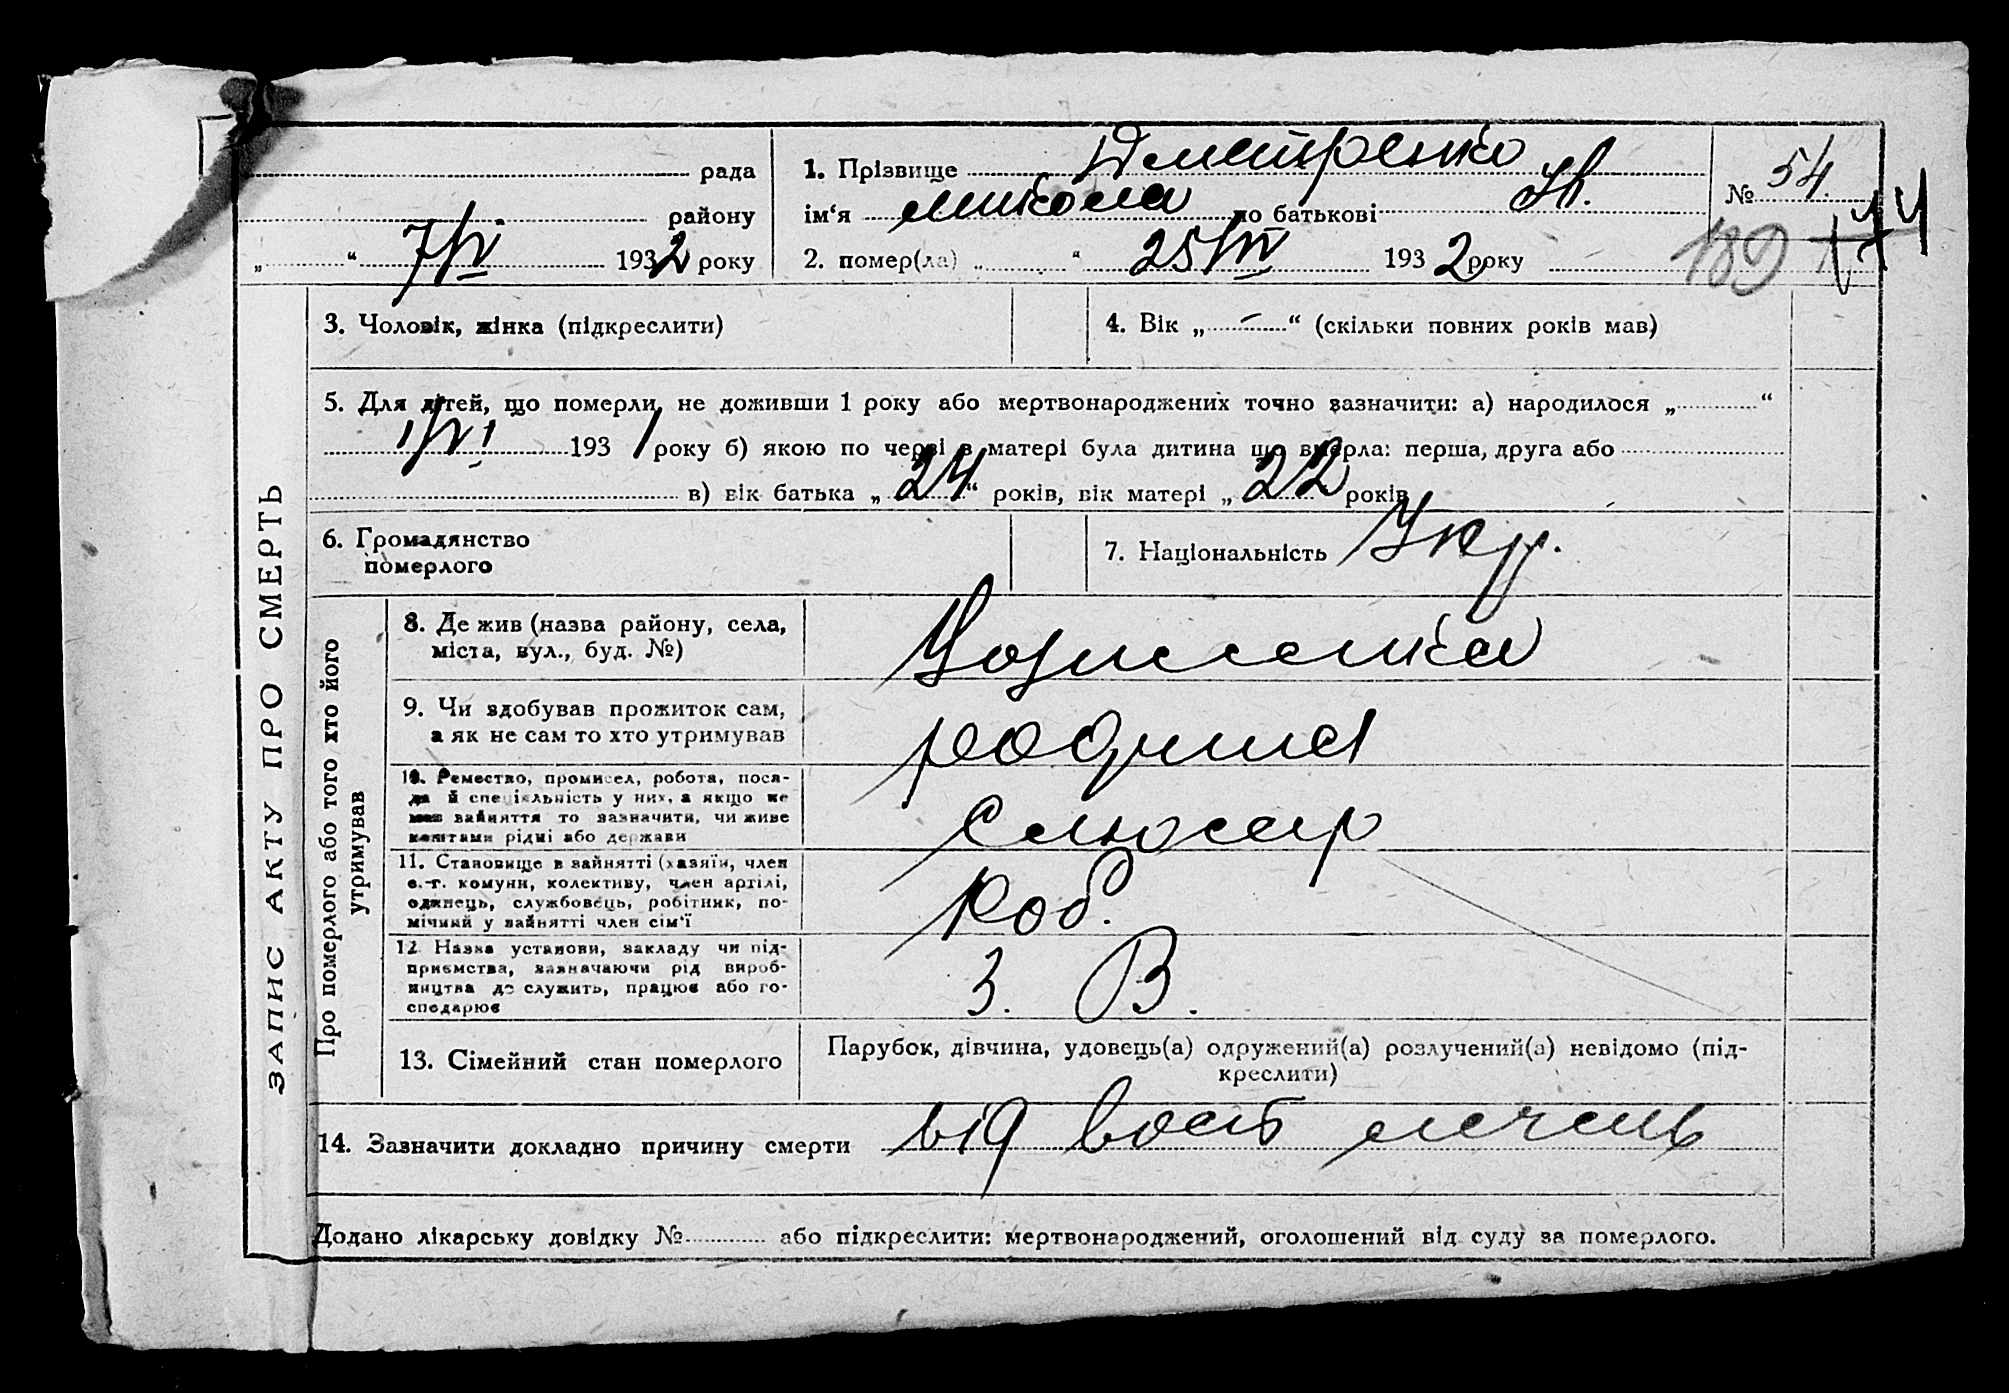 рада
1. Прізвище Дмитренко
№ 54.
району
ім‘я Микола по батькові
189
„ “ 7/V 1932 року
2. помер(ла) „ “ 25/IV 1932 року
3. Чоловік, жінка (підкреслити)
4. Вік „ – “ (скільки повних років мав)
5. Для дітей, що померли, не доживши 1 року або мертвонароджених точно зазначити: а) народилося „ “
1/VI 1931 року б) якою по черзі в матері була дитина що вмерла: перша, друга або
в) вік батька „ 24 “ років, вік матері „ 22 років
6. Громадянство
померлого
7. Національність Укр.
ЗАПИС АКТУ ПРО СМЕРТЬ
Про померлого або того хто його
утримував
8. Де жив (назва району, села,
міста, вул., буд. №)
9. Чи здобував прожиток сам,
а як не сам то хто утримував
родина
10. Ремество, промисел, робота, поса-
да й спеціяльність у них, а якщо не
мав вайняття то зазначити, чи живе
коштами рідні або держави
слюсар
11. Становище в вайнятті (хазяїн, член
с.-г. комуни, колективу, член артілі,
одинець, службовець, робітник, по-
мічний у вайнятті член сім‘ї
Роб.
12. Назва установи, закладу чи під-
приємства, зазначаючи рід вироб-
ництва де служить, працює або го-
сподарює
З. В.
13. Сімейний стан померлого
Парубок, дівчина, удовець(а) одружений(а) розлучений(а) невідомо (під-
креслити)
14. Зазначити докладно причину смерти від восп легень
Додано лікарську довідку № або підкреслити: мертвонароджений, оголошений від суду за померлого.